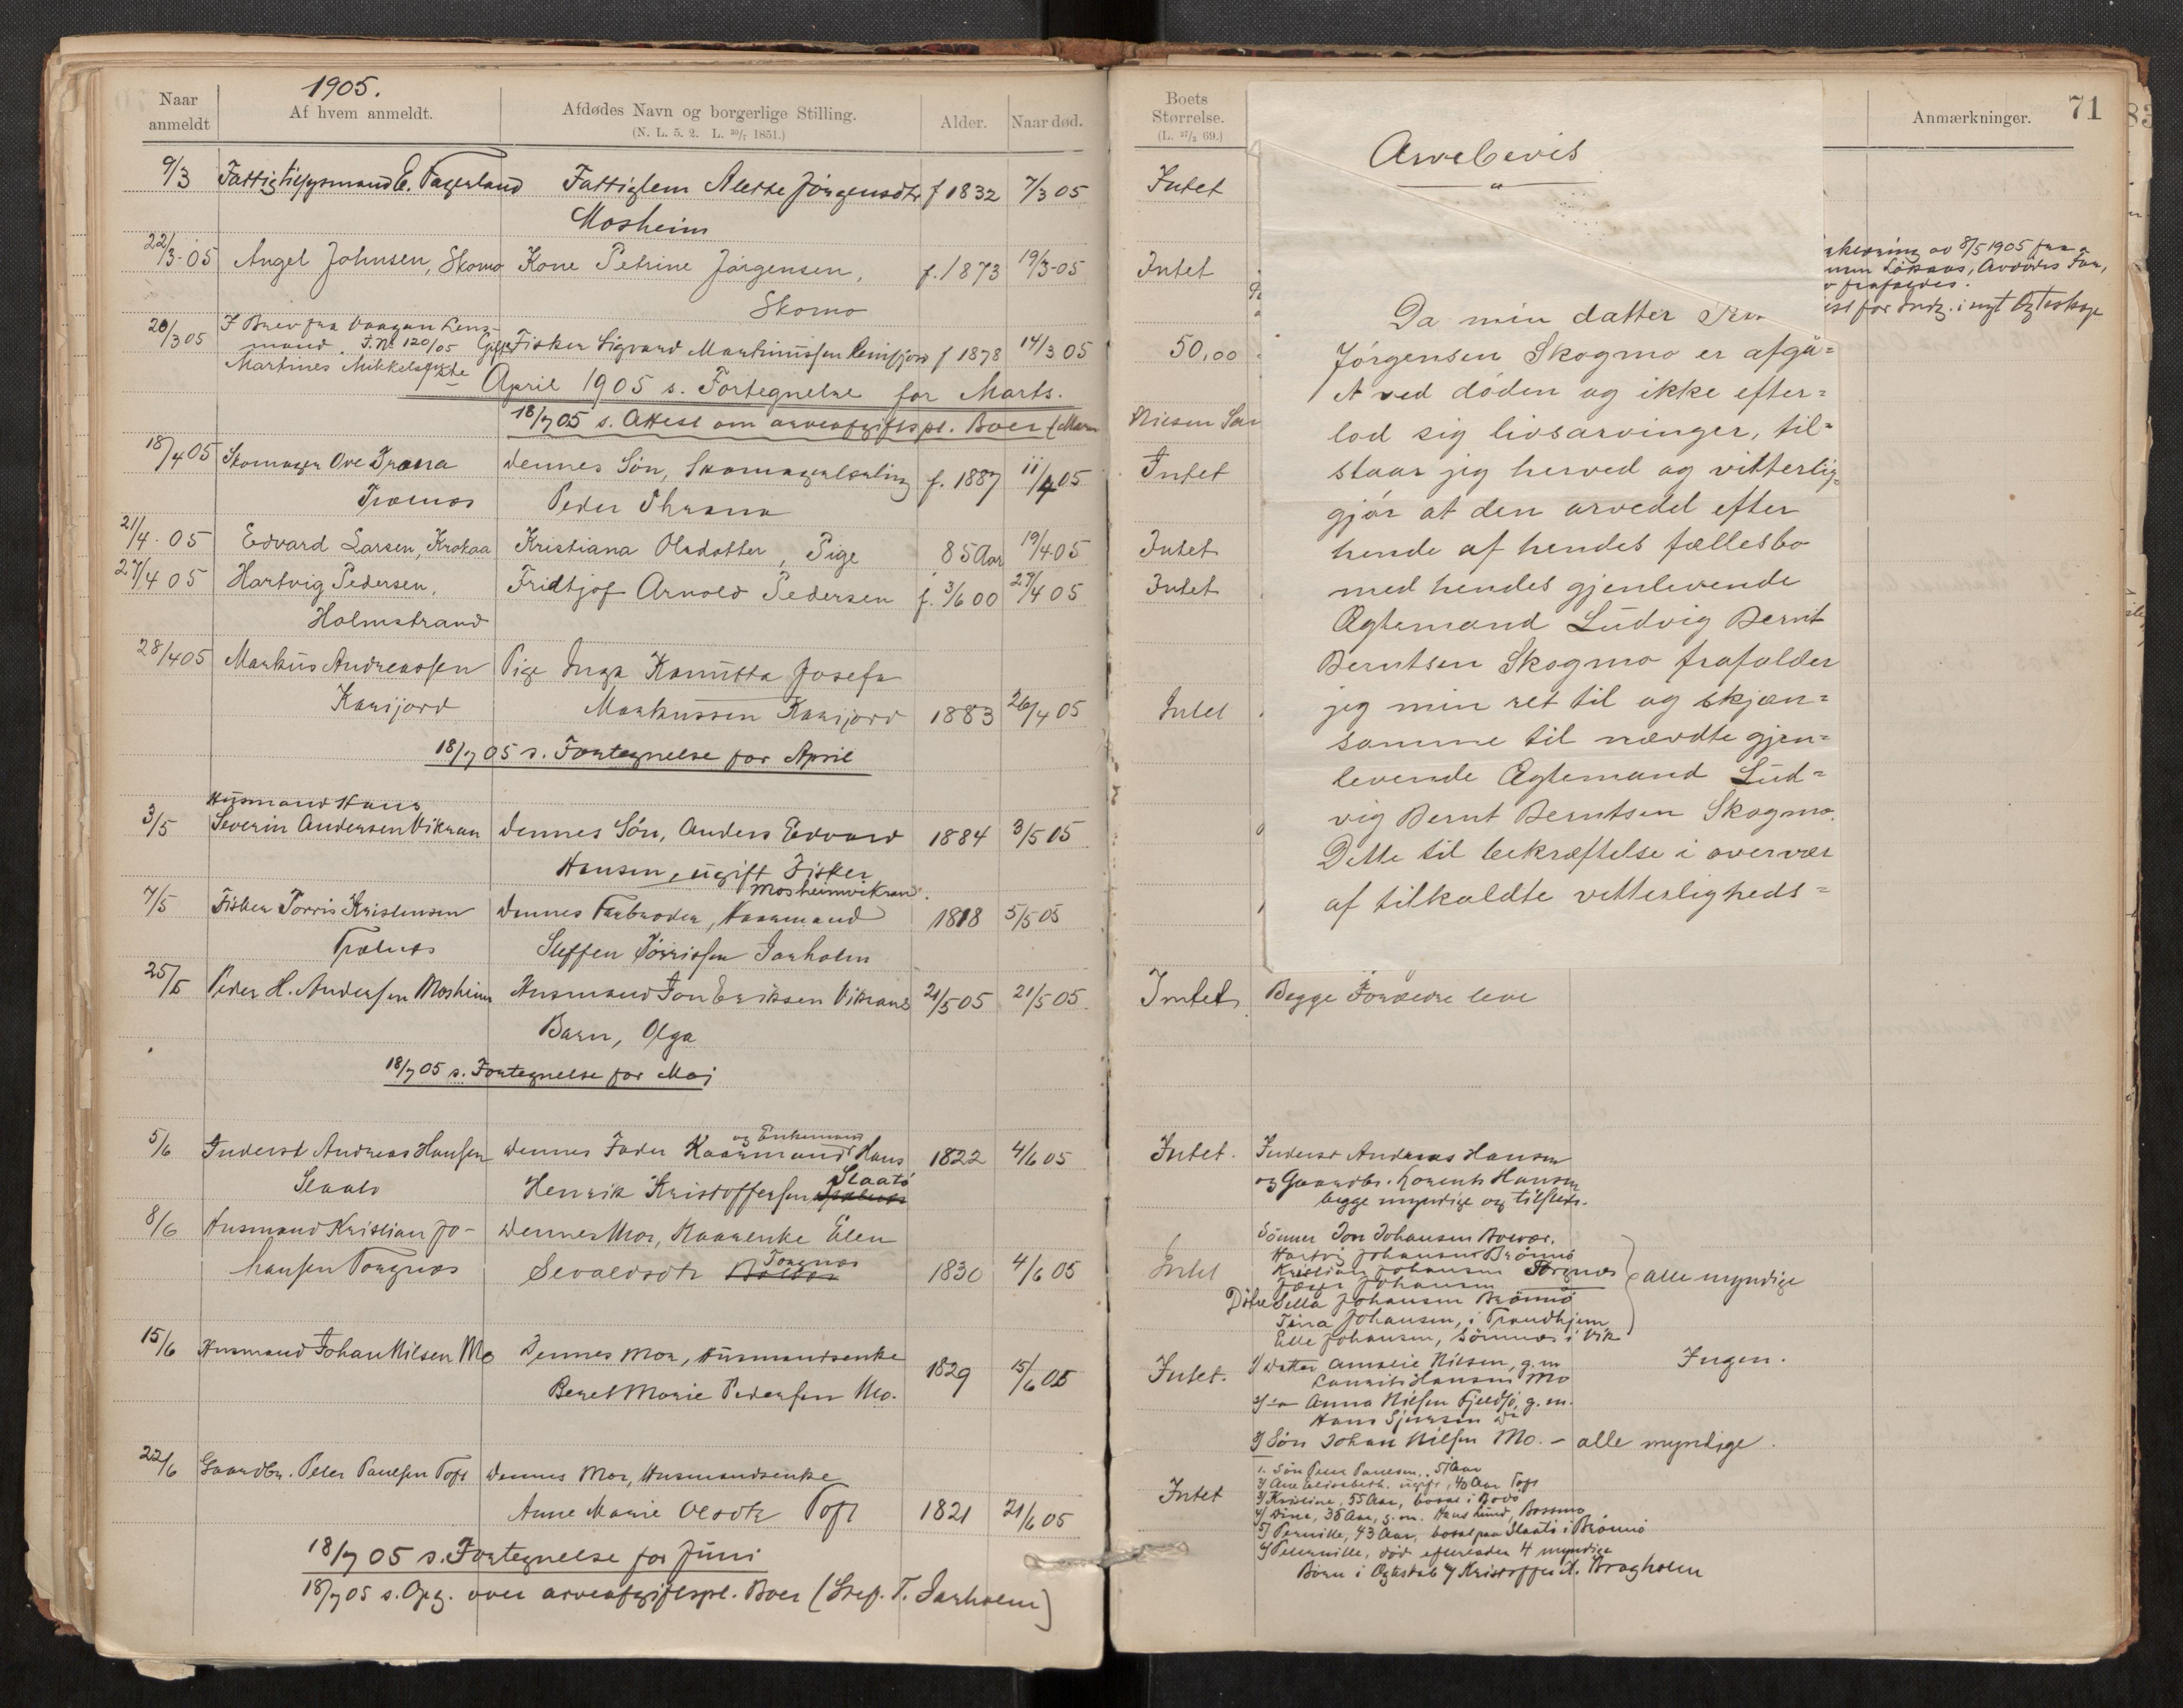 1905.
Naar anmeldt
Af hvem anmeldt.
Afdødes Navn og borgerlige Stilling.
(N. L. 5. 2. L. 30/7 1851.)
Alder.
Naar død.
9/3 Fattigtilsynsmand E. Fagerland Fattiglem Alette Jørgensdtr f 1832 7/3 05
Mosheim
22/3-05 Angel Johnsen, Skomo Kone Petrine Jørgensen, f. 1873 19/3-05
Skomo
20/3 05 I Brev fra Vaagan Lens-
mand J. No 120/05 Gift Fisker Sigvard Martinussen Reinfjord f 1878 14/3 05
Martines Mikkelsen
April 1905 s. Fortegnelse for Marts.
18/7 05 s. Attest om arveafgiftspl. Boer
18/4 05 Skomager Ove Trana dennes Søn, Skomagerlærling f. 1887 11/4 05
Peder Thrana
21/4. 05 Edvard Larsen, Krokaa Kristiana Olsdatter, Pige 85 Aar 19/4 05
27/4 05 Hartvig Pedersen, Fridtjof Arnold Pedersen f. 3/6 00 27/4 05
Holmstrand
28/4 05 Markus Andreassen Pige Inga Kanutta Josefa
Karijord Markussen Karijord 1883 26/4 05
18/7 05 s. Fortegnelse for April
Husmand Hans
3/5 Severin Andersen Vikran dennes Søn, Anders Edvard 1884 3/5 05
Hansen, ugift Fisker
Mosheimvikran.
7/5 Fisker Torris Kristensen dennes Farbroder, Kaarmand 1818 5/5 05
Steffen Torrissen Jarholm
25/5 Peder H. Andersen Mosheim Husmand Jon Eriksen Vikrans 21/5 05 21/5 05
Barn, Olga
18/7 05 s. Fortegnelse for Maj
5/6 Inderst Andreas Hansen dennes Fader Kaarmand og Enkemand Hans 1822 4/6 05
Slaatø Henrik Kristoffersen Slaatø
8/6 Husmand Kristian Jo- dennes Mor, Kaarenke Elen
hansen Torgnes Sevaldsdtr Torgnes 1830 4/6 05
15/6 Husmand Johan Nilsen Mo Dennes Mor, Husmandsenke 1829 15/6 05
Beret Marie Pedersen Mo.
22/6 Gaardbr. Peter Paulsen Toft dennes Mor, Husmandsenke
Anne Marie Olsdtr Toft 1821 21/6 05
18/7 05 s. Fortegnelse for Juni
18/7 05 s. Opg. over arveafgiftspl. Boer (Stef. T. Jarholm)
Boets Størrelse.
(L. 27/2 69.)
Anmærkninger.
71
Intet
Intet
50,00
Nilsen
Intet
Intet
Intet
Intet
Arvebevis
Da min datter
Jørgensen Skogmo er afgå=
t ved døden og ikke efter=
lod sig livsarvinger, til=
staar jeg herved og vitterlig=
gjør at den arvedel efter
hende af hendes fællesbo
med hendes gjenlevende
Ægtemand Ludvig Bernt
Berntsen Skogmo frafalder
jeg min ret til og skjæn=
samme til nævdte gjen=
levende Ægtemand Lud=
vig Bernt Berntsen Skogmo.
Dette til bekræftelse i overvær
af tilkaldte vitterligheds=
av 8/5 1905 fra
Avdødes Far,
frafaldes.
for Indg. i nyt Ægteskap
Intet Begge Forældre leve
Intet. Inderst Andreas Hansen
og Gaardbr. Lorents Hansen
begge myndige og tilstede.
Intet
Sønner Jon Johansen
Hartvig Johansen Brønnø
Kristian Johansen Torgnes
Johansen
Døtre Sella Johansen Brønnø
Tina Johansen, i Trondhjem
Elle Johansen, Sømnes i Vik
alle myndige
Intet. 1/ datter Amalie Nilsen, g. m. Ingen.
Laurits Hansen Mo
2/ Anna Nilsen Fjeldsø, g. m.
Hans Sjursen
3/ Søn Johan Nilsen Mo. - alle myndige.
Intet
1. Søn Peter Paulsen, 51 Aar
2/ Ane Elisabeth, ugift, 40 Aar Toft
3/ Kristine, 55 Aar, bosat i Bodø
4/ Dina, 35 Aar, g. m. Hans Lund,
5/ Pernille, 43 Aar, bosat paa Slaatø i Brønnø
6/ Peternille, død efterlader 4 myndige
Børn i Ægteskab m/ Kristoffer A. Bragholm